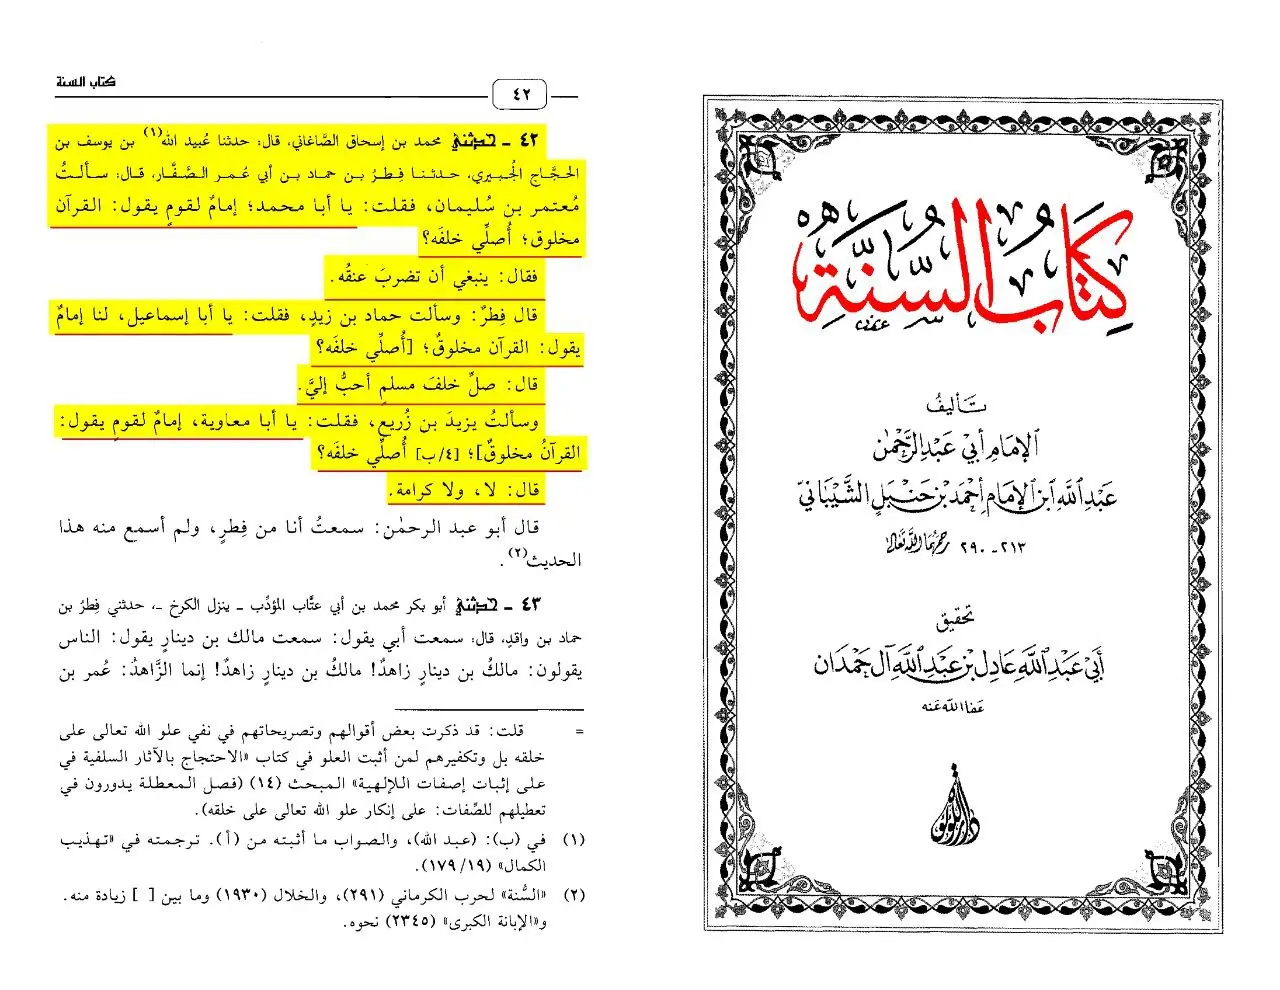 كتاب السنة
٤٢
٤٢ - حدثني محمد بن إسحاق الصَّاغاني، قال: حدثنا عُبيد الله(١) بن يوسف بن
الحجَّاج الجُبيري، حدثنا فِطرُ بن حماد بن أبي عُمر الصَّفَّار، قال: سألتُ
مُعتمر بن سُليمان، فقلت: يا أبا محمد؛ إمامٌ لقومٍ يقول: القرآن
مخلوق؛ أُصلِّي خلفَه؟
فقال: ينبغي أن تضربَ عنقُه.
قال فِطرٌ: وسألت حماد بن زيدٍ، فقلت: يا أبا إسماعيل، لنا إمامٌ
يقول: القرآن مخلوقٌ؛ [أُصلِّي خلفَه؟
قال: صلِّ خلفَ مسلمٍ أحبُّ إليَّ.
وسألتُ يزيدَ بن زُريعٍ، فقلت: يا أبا معاوية، إمامٌ لقومٍ يقول:
القرآنُ مخلوقٌ]؛ [٤/ب] أُصلِّي خلفَه؟
قال: لا، ولا كرامة.
قال أبو عبد الرحمٰن: سمعتُ أنا من فِطرٍ، ولم أسمع منه هذا
الحديث(٢).
٤٣ - حدثني أبو بكر محمد بن أبي عتَّاب المؤدِّب - ينزل الكرخ -، حدثني فِطرُ بن
حماد بن واقدٍ، قال: سمعت أبي يقول: سمعت مالك بن دينارٍ يقول: الناس
يقولون: مالكُ بن دينارٍ زاهدٌ! مالكُ بن دينارٍ زاهدٌ! إنما الزَّاهدُ: عُمر بن
= قلت: قد ذكرت بعض أقوالهم وتصريحاتهم في نفي علو الله تعالى على
خلقه بل وتكفيرهم لمن أثبت العلو في كتاب «الاحتجاج بالآثار السلفية في
على إثبات إصفات اللإلهية» المبحث (١٤) (فصل المعطلة يدورون في
تعطيلهم للصِّفات: على إنكار علو الله تعالى على خلقه).
(١) في (ب): (عبد الله)، والصواب ما أثبته من (أ). ترجمته في «تهذيب
الكمال» (١٧٩/١٩).
(٢) «السُّنة» لحرب الكرماني (٢٩١)، والخلال (١٩٣٠) وما بين [ ] زيادة منه.
و«الإبانة الكبرى» (٢٣٤٥) نحوه.
كِتَابُ السُّنَّة
تأليف
الإمام أبي عبد الرحمٰن
عبد الله ابن الإمام أحمد بن حنبل الشَّيباني
٢١٣ - ٢٩٠ رحمهما الله تعالى
تحقيق
أبي عبد الله عادل بن عبد الله آل حمدان
عفا الله عنه
دار اللؤلؤة